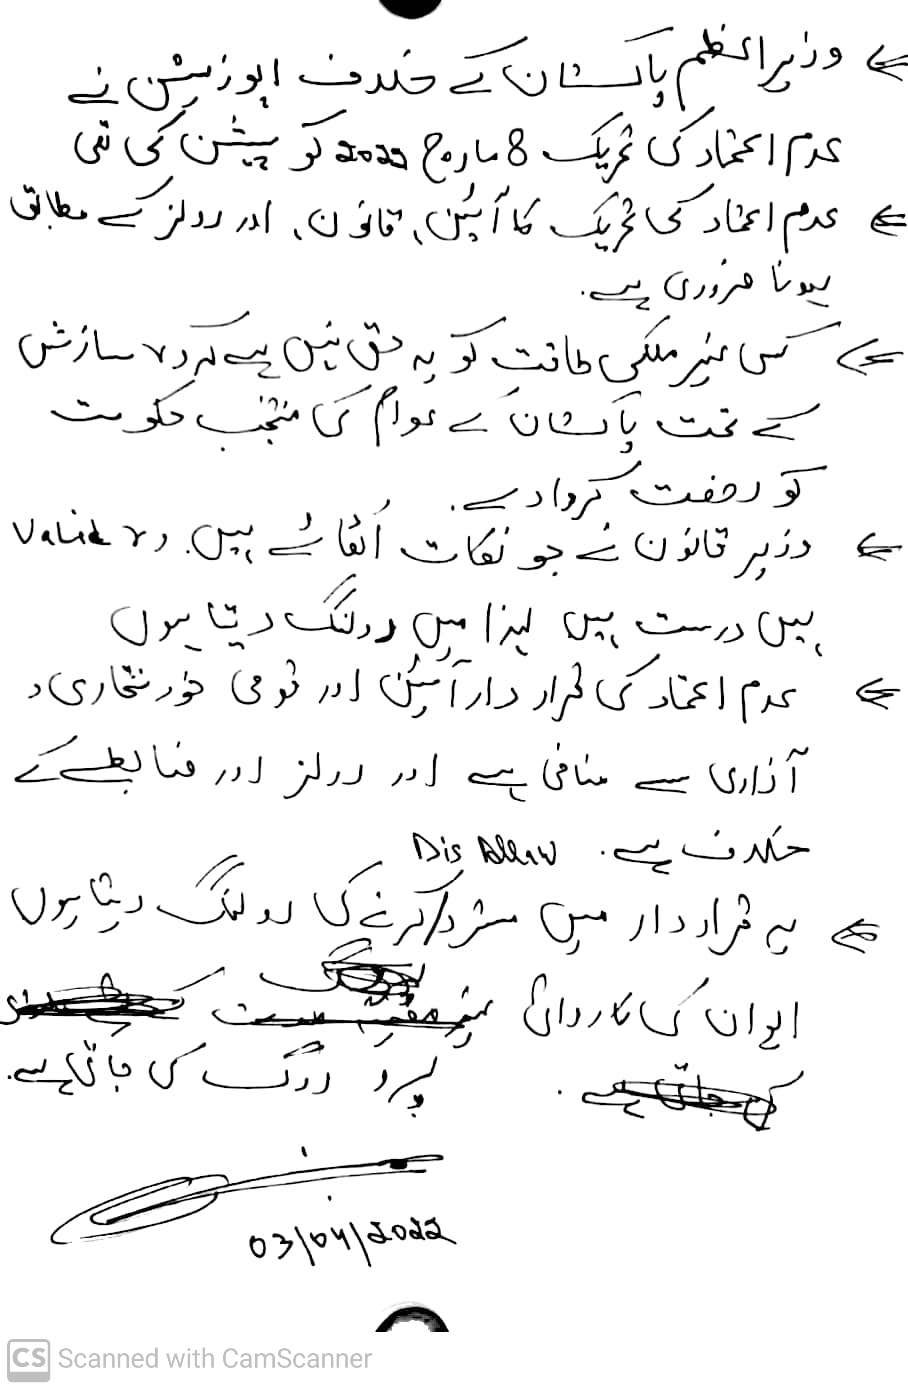 وزیراعظم پاکستان کے خلاف اپوزیشن نے
عدم اعتماد کی تحریک 8 مارچ 2022 کو پیش کی تھی
عدم اعتماد کی تحریک کا آئین، قانون، اور رولز کے مطابق
ہونا ضروری ہے.
کسی غیر ملکی طاقت کو یہ حق نہیں ہے کہ وہ سازش
کے تحت پاکستان کے عوام کی منتخب حکومت
کو رخصت کروا دے.
وزیر قانون نے جو نکات اُٹھائے ہیں. وہ Valid
ہیں درست ہیں لہذا میں رولنگ دیتا ہوں
عدم اعتماد کی قرارداد آئین اور قومی خودمختاری و
آزادی سے منافی ہے اور رولز اور ضابطے کے
خلاف ہے. Dis Allow
یہ قرارداد میں مسترد/کرنے کی رولنگ دیتا ہوں
ایوان کی کاروائی
پرو روگ کی جاتی ہے.
03/04/2022
CS Scanned with CamScanner